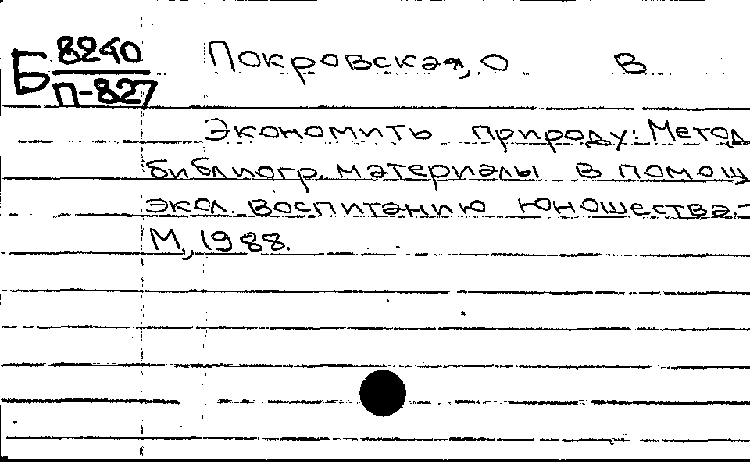 Б 8240
П-827
Покровская, О В
Экономить природу: Метод
библиогр. материалы в помощ
экол. воспитанию юношества.-
М, 1988.